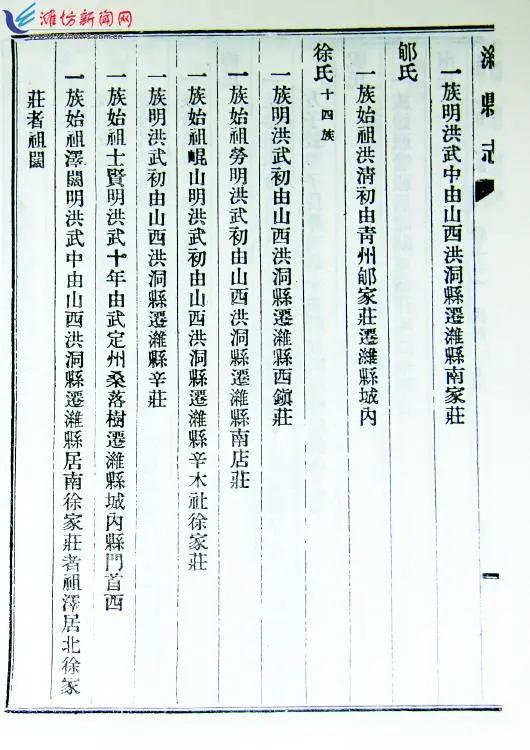 潍坊新闻网
濰縣志
一族明洪武中由山西洪洞縣遷濰縣南家莊
邮氏
一族始祖洪清初由青州邮家莊遷濰縣城內
徐氏十四族
一族明洪武初由山西洪洞縣遷濰縣西鎭莊
一族始祖勞明洪武初由山西洪洞縣遷濰縣南店莊
一族始祖崐山明洪武初由山西洪洞縣遷濰縣辛木社徐家莊
一族明洪武初由山西洪洞縣遷濰縣辛莊
一族始祖士賢明洪武十年由武定州桑落樹遷濰縣城內縣門首西
一族始祖澤闊明洪武中由山西洪洞縣遷濰縣居南徐家莊者祖澤居北徐家
莊者祖闊